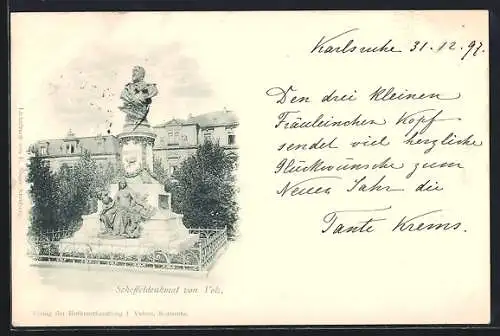 Karlsruhe 31.12.97.
Den drei kleinen
Fräuleinchen Kopf
sendet viel herzliche
Glückwünsche zum
Neuen Jahr die
Tante Krems.
Scheffeldenkmal von Volz.
Verlag der Hofkunsthandlung J. Velten, Karlsruhe.
Lichtdruck von